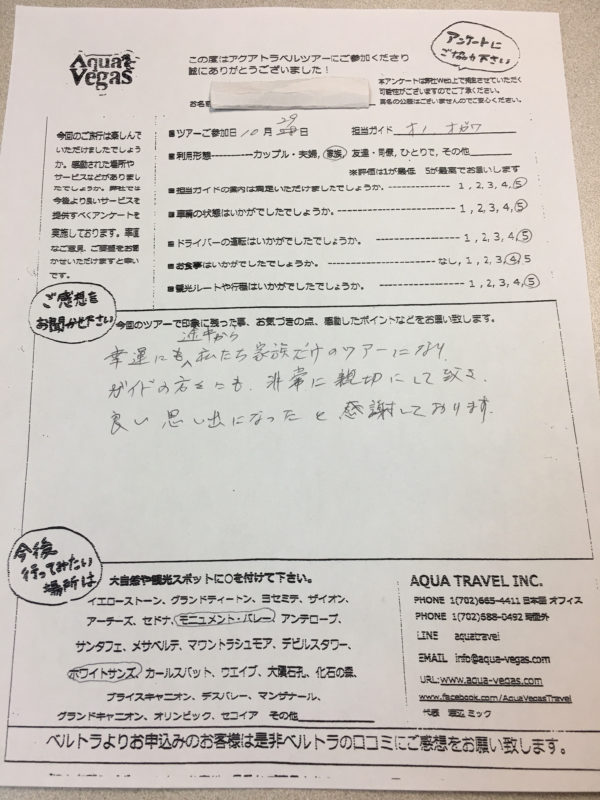 Aqua
Vegas
この度はアクアトラベルツアーにご参加くださり
誠にありがとうございました！
アンケートに
ご協力下さい
本アンケートは弊社Web上で発表させていただく
可能性がございますのでご了承ください。
真名の公開はございませんのでご安心ください。
お名前
今回のご旅行は楽しんで
いただけましたでしょう
か。感動された場所や
サービスなどがありまし
たでしょうか。弊社では
今後より良いサービスを
提供すべくアンケートを
実施しております。率直
なご意見、ご要望をお聞
かせいただけますと幸い
です。
■ツアーご参加日 10月 29日 担当ガイド オノ オガワ
■利用形態----------カップル・夫婦, 家族, 友達・同僚, ひとりで, その他
※評価は1が最低 5が最高でお願いします
■担当ガイドの案内は満足いただけましたでしょうか。---------------- 1, 2, 3, 4, 5
■車輛の状態はいかがでしたでしょうか。---------------- 1, 2, 3, 4, 5
■ドライバーの運転はいかがでしたでしょうか。---------------- 1, 2, 3, 4, 5
■お食事はいかがでしたでしょうか。---------------- なし, 1, 2, 3, 4, 5
■観光ルートや行程はいかがでしたでしょうか。---------------- 1, 2, 3, 4, 5
ご感想を
お聞かせ下さい
今回のツアーで印象に残った事、お気づきの点、感動したポイントなどをお願い致します。
途中から
幸運にも、私たち家族だけのツアーになり、
ガイドの方々にも、非常に親切にして頂き、
良い思い出になったと感謝しております。
今後
行ってみたい
場所は
大自然や観光スポットに○を付けて下さい。
イエローストーン、グランドティートン、ヨセミテ、ザイオン、
アーチーズ、セドナ、モニュメント・バレー、アンテロープ、
サンタフェ、メサベルデ、マウントラシュモア、デビルスタワー、
ホワイトサンズ、カールスバット、ウエイブ、大隕石孔、化石の森、
ブライスキャニオン、デスバレー、マンザナール、
グランドキャニオン、オリンピック、セコイア その他
AQUA TRAVEL INC.
PHONE 1(702)665-4411 日本国 オフィス
PHONE 1(702)588-0492 時間外
LINE aquatravel
EMAIL info@aqua-vegas.com
URL: www.aqua-vegas.com
www.facebook.com/AquaVegasTravel
代表 渡辺 ミック
ベルトラよりお申込みのお客様は是非ベルトラの口コミにご感想をお願い致します。